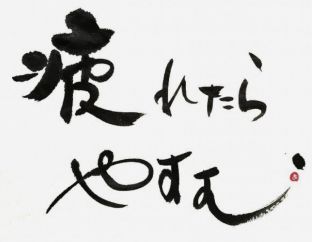 疲れたら
やすむ